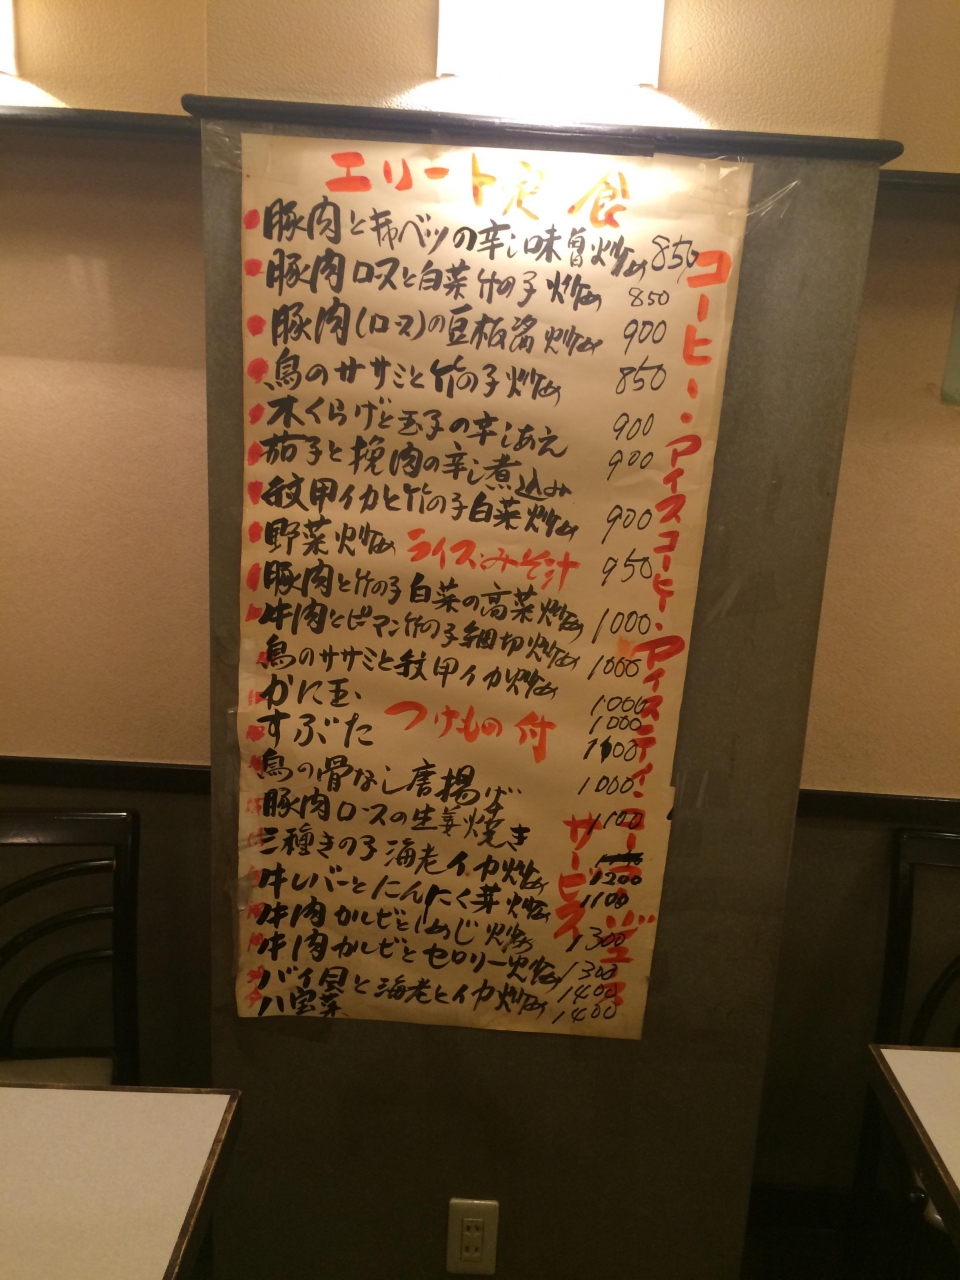 エリート定食
豚肉とキャベツの辛し味噌炒め 850
豚肉ロースと白菜竹の子炒め 850
豚肉(ロース)の豆板醤炒め 900
鳥のササミと竹の子炒め 850
木くらげと玉子の辛しあえ 900
茄子と挽肉の辛し煮込み 900
紋甲イカと竹の子白菜炒め 900
野菜炒め ライス・みそ汁 950
豚肉と竹の子白菜の高菜炒め 1000
牛肉とピーマン竹の子細切炒め 1000
鳥のササミと紋甲イカ炒め 1000
かに玉 1000
すぶた つけもの付 1100
鳥の骨なし唐揚げ 1000
豚肉ロースの生姜焼き 1100
三種きの子海老イカ炒め 1200
牛レバーとにんにく芽炒め 1100
牛肉カルビとしめじ炒め 1300
牛肉カルビとセロリー炒め 1300
バイ貝と海老とイカ炒め 1400
八宝菜 1400
コーヒー・アイスコーヒー・アイスティ・コーラ・ジュース
サービス